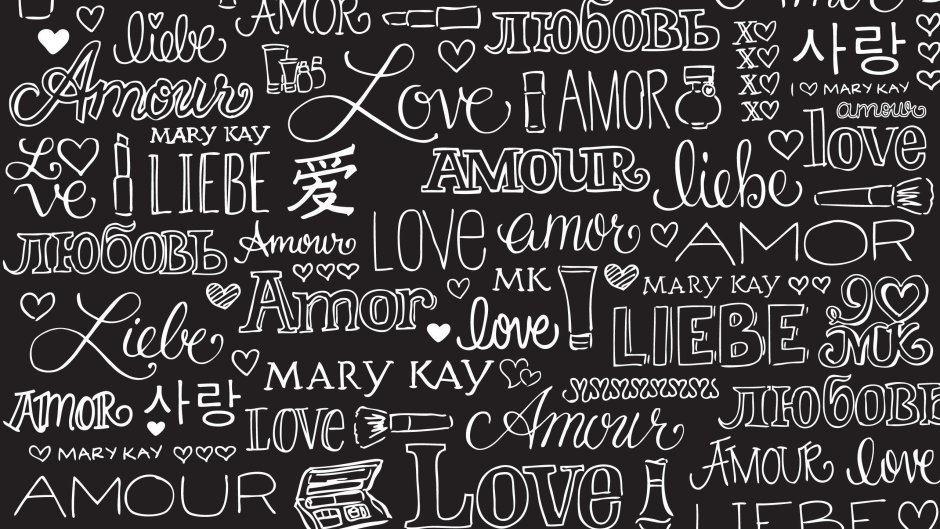 AMOR
ЛЮБОВЬ
Amor
liebe
Love
X♡
X♡
X♡
X♡
사랑
Amour
AMOR
I ♡ MARY KAY
amour
love
MARY KAY
LOVE
LIEBE
爱
AMOUR
liebe
ЛЮБОВЬ
Amour
LOVE
amor
AMOR
MK
MARY KAY
Amor
love
LIEBE
Liebe
MK
MARY KAY
AMOR
사랑
LOVE
Amour
ЛЮБОВЬ
MARY KAY
AMOUR
love
AMOUR
Love
LIEBE